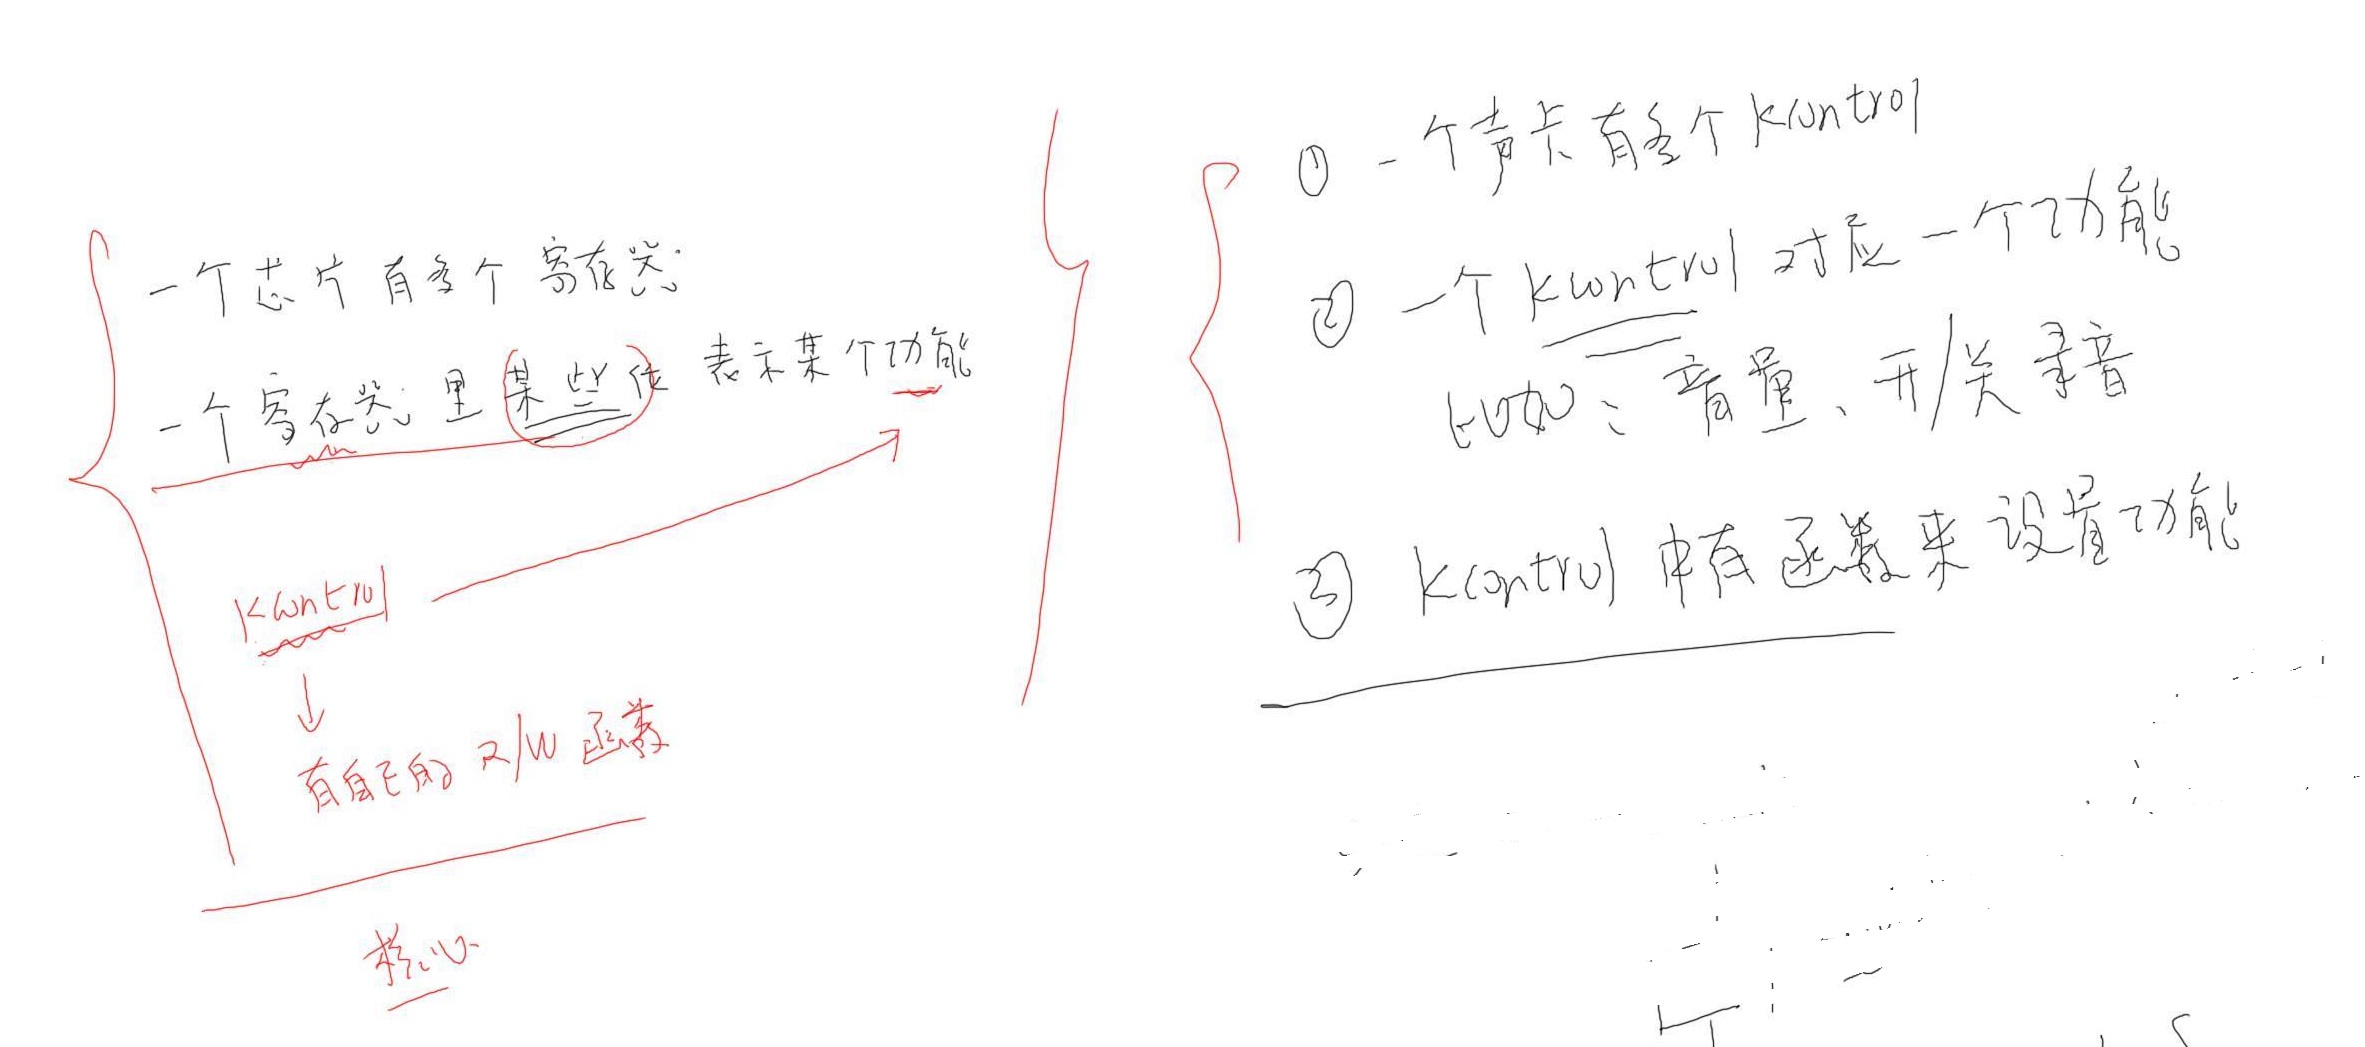 一个芯片有多个寄存器
一个寄存器里某些位 表示某个功能
kcontrol
有自己的 R/W 函数
核心
① 一个声卡有多个kcontrol
② 一个 kcontrol 对应一个功能
比如：音量、开/关录音
③ kcontrol 中有函数来设置功能